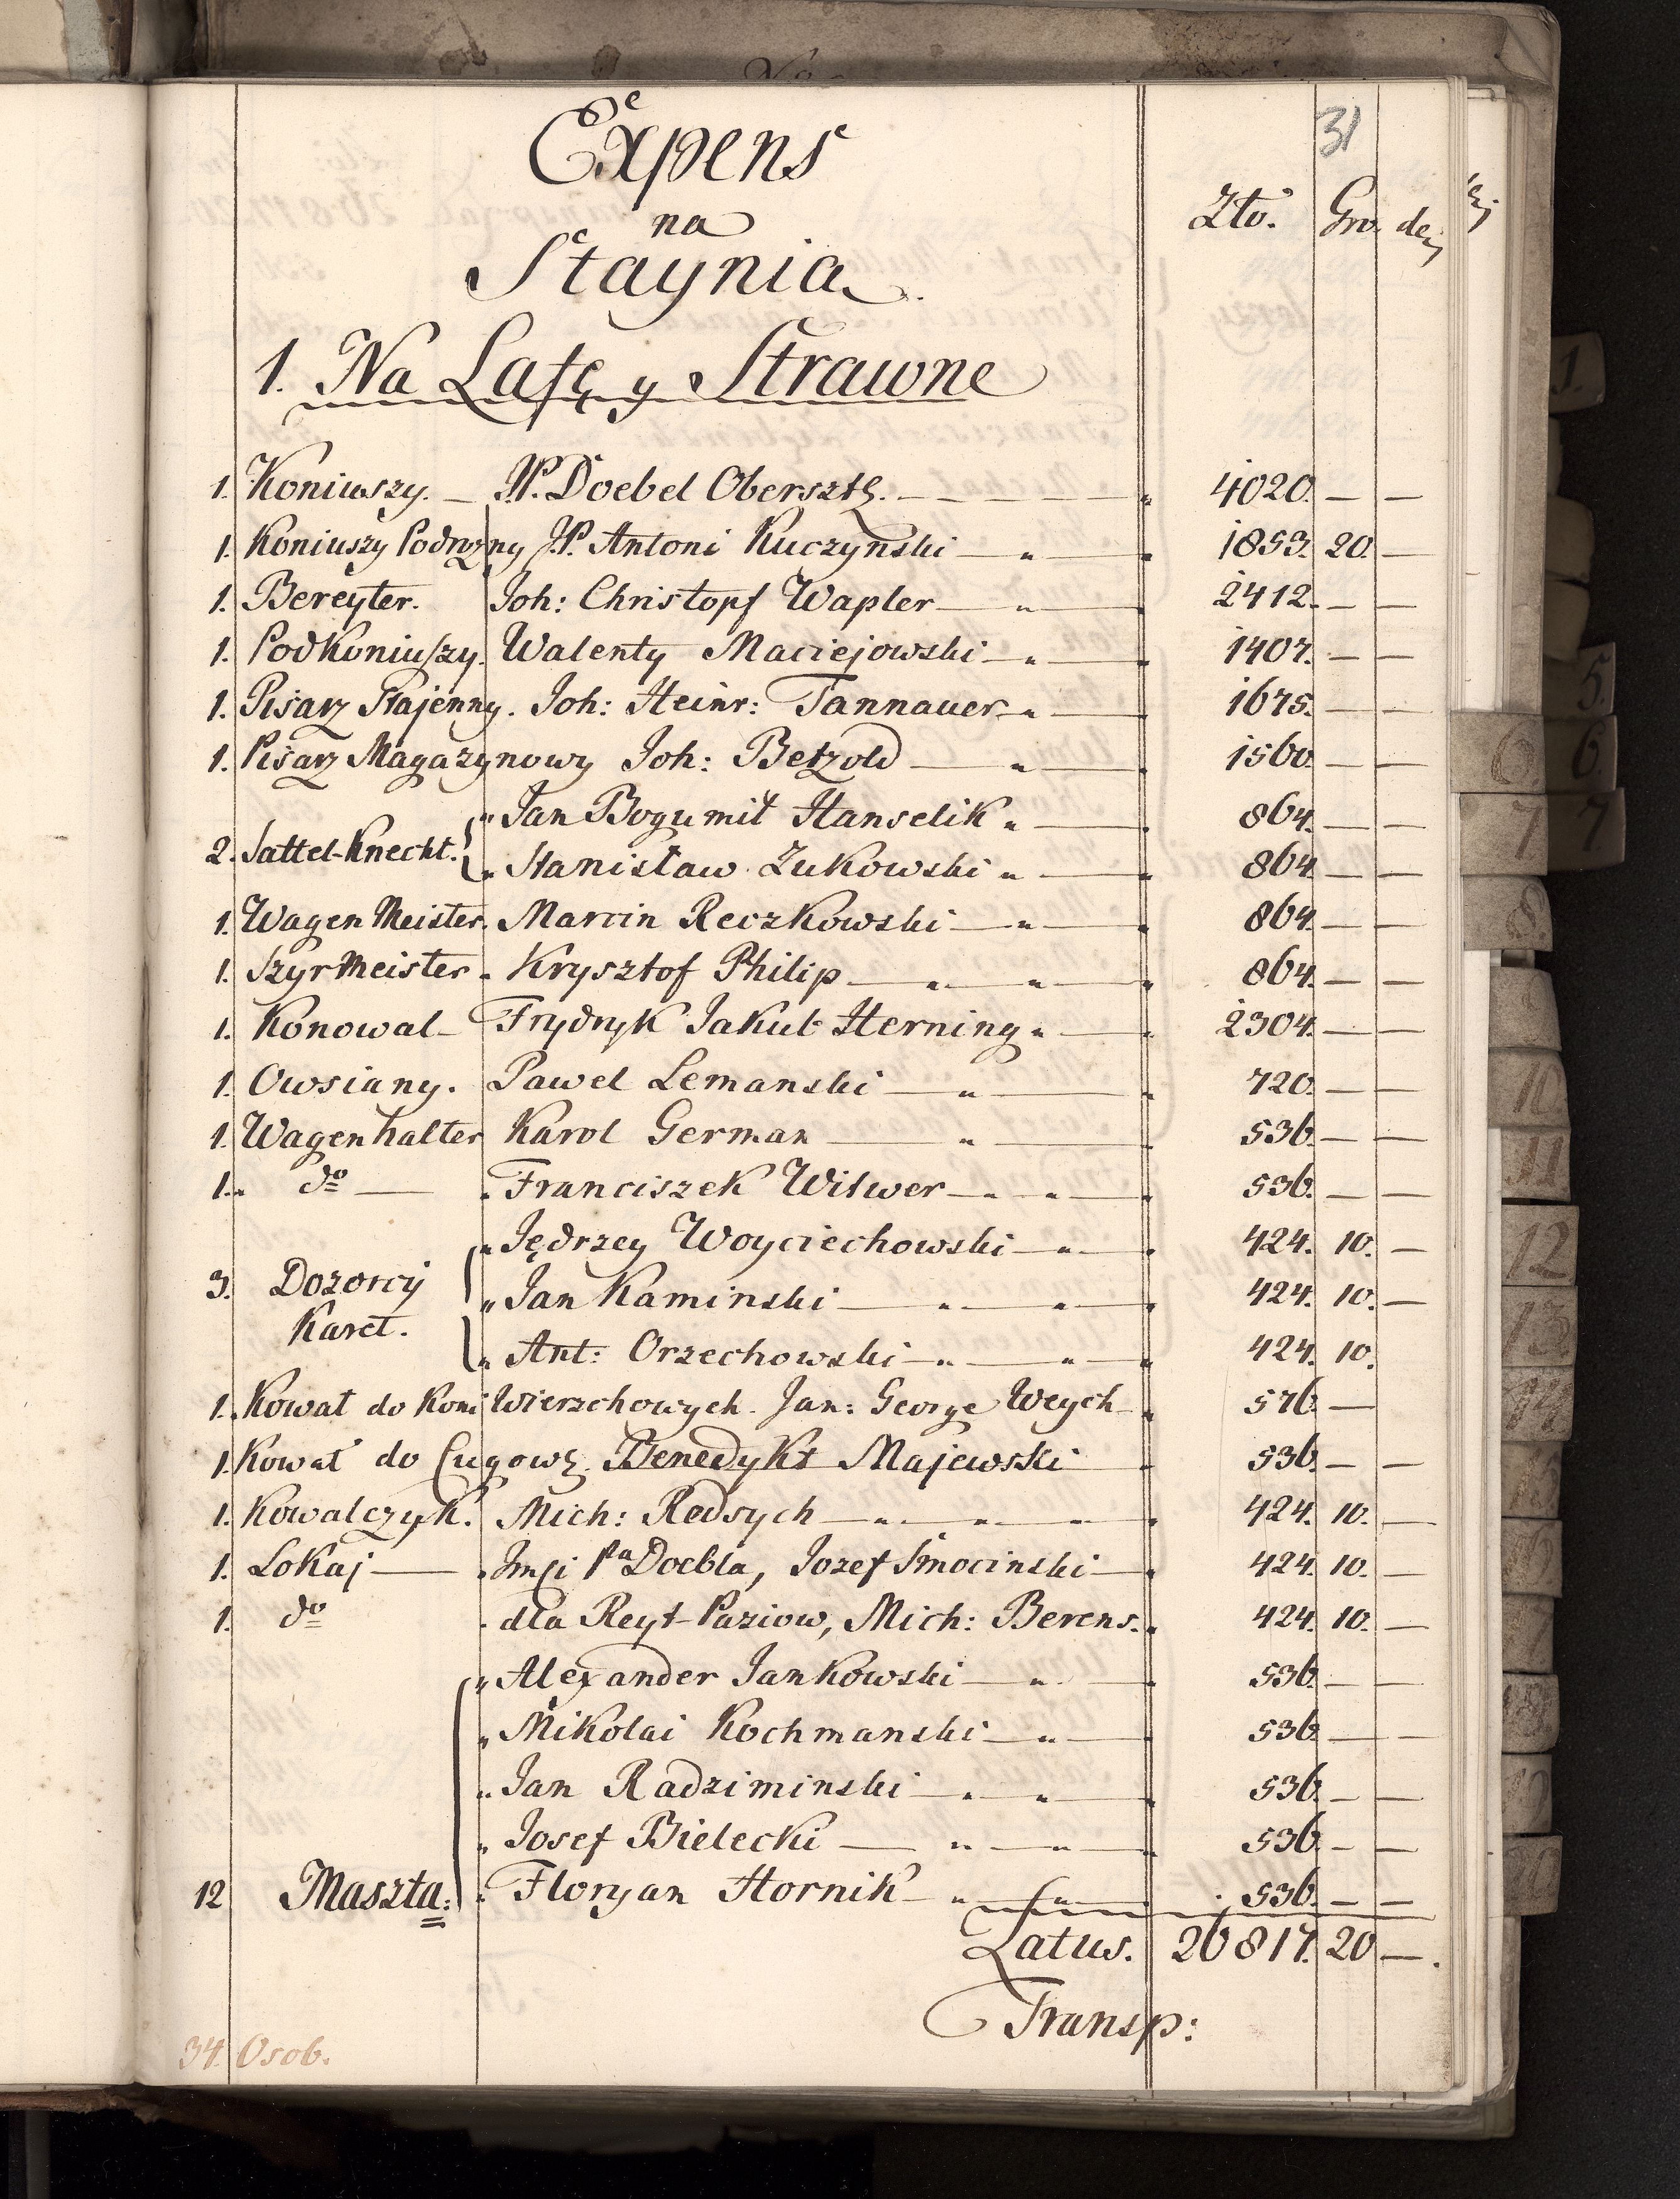 31
Expens
na
Staynia
Zło. Gro. den
1. Na Lafę y Strawne
1. Koniuszy. — JP. Doebel Obersztl. — 4020. — —
1. Koniuszy Podrożny JP. Antoni Kuczynski — 1853. 20. —
1. Bereyter. Joh: Christopf Wapler — 2412. — —
1. PodKoniuszy. Walenty Maciejowski — 1407. — —
1. Pisarz Stajenny. Joh: Heinr: Tannauer — 1675. — —
1. Pisarz Magazynowy Joh: Betzold — 1560. — —
" Jan Bogumił Hanselik " — 864. — —
2. Sattel-Knecht. " Stanisław Zukowski " — 864. — —
1. Wagen Meister. Marcin Reczkowski — 864. — —
1. Szyrmeister. Krysztof Philip — 864. — —
1. Konowal — Frydryk Jakub Herning " — 2304. — —
1. Owsiany. Pawel Lemanski — 720. — —
1. Wagenhalter Karol German — 536. — —
1. " do — " Franciszek Witwer — 536. — —
" Jędrzey Woyciechowski — 424. 10. —
3. Dozorcy " Jan Kaminski — 424. 10. —
Karet. " Ant: Orzechowski — 424. 10.
1. Kowal do Koni Wierzchowych. Jan: George Weych 576. —
1. Kowal do Cugowz. Benedykt Majewski 536. — —
1. Kowalczyk. Mich: Redsych — 424. 10. —
1. Lokaj — Jmci Pa Doebla, Jozef Smocinski — 424. 10. —
1. do dla Reyt-Paziow, Mich: Berens. 424. 10. —
" Alexander Jankowski — 536. — —
" Mikolai Kochmanski — 536. — —
" Jan Radziminski — 536. — —
" Josef Bielecki — 536. — —
12 Maszta: " Floryan Hornik — 536. — —
Latus. 26817. 20 —.
Transp:
34. Osob.
1.
5.
6 6.
7 7
8
9
10
11
12
13
14